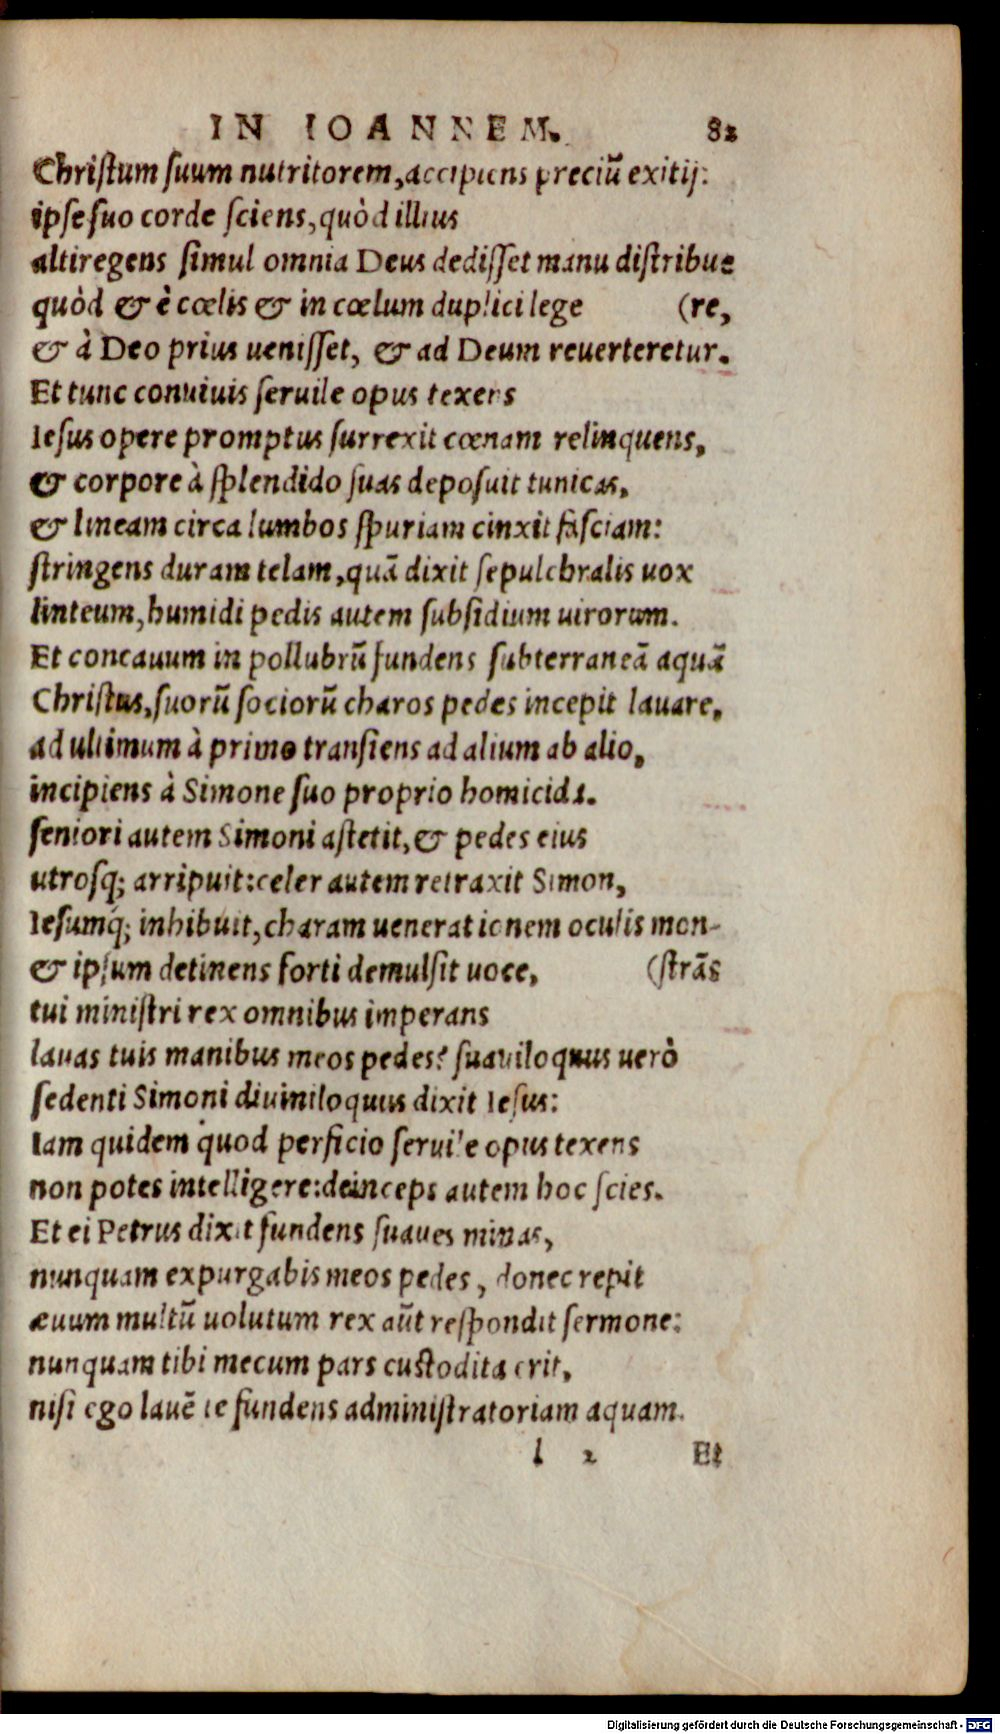 IN IOANNEM. 82
Christum suum nutritorem, accipiens preciũ exitij:
ipse suo corde sciens, quòd illius
altiregens simul omnia Deus dedisset manu distribue
quòd & è cœlis & in cœlum duplici lege (re,
& à Deo prius uenisset, & ad Deum reuerteretur.
Et tunc conuiuis seruile opus texens
Iesus opere promptus surrexit cœnam relinquens,
& corpore à splendido suas deposuit tunicas,
& lineam circa lumbos spuriam cinxit fasciam:
stringens duram telam, quã dixit sepulchralis uox
linteum, humidi pedis autem subsidium uirorum.
Et concauum in pollubrũ fundens subterraneã aquã
Christus, suorũ sociorũ charos pedes incepit lauare,
ad ultimum à primo transiens ad alium ab alio,
incipiens à Simone suo proprio homicida.
seniori autem Simoni astetit, & pedes eius
utrosq; arripuit: celer autem retraxit Simon,
Iesumq́; inhibuit, charam uenerationem oculis mon-
& ipsum detinens forti demulsit uoce, (strãs
tui ministri rex omnibus imperans
lauas tuis manibus meos pedes? suauiloquus uerò
sedenti Simoni diuiniloquus dixit Iesus:
Iam quidem quod perficio seruile opus texens
non potes intelligere: deinceps autem hoc scies.
Et ei Petrus dixit fundens suaues minas,
nunquam expurgabis meos pedes, donec repit
æuum multũ uolutum rex aũt respondit sermone:
nunquam tibi mecum pars custodita erit,
nisi ego lauẽ te fundens administratoriam aquam.
l 2 Et
Digitalisierung gefördert durch die Deutsche Forschungsgemeinschaft - DFG